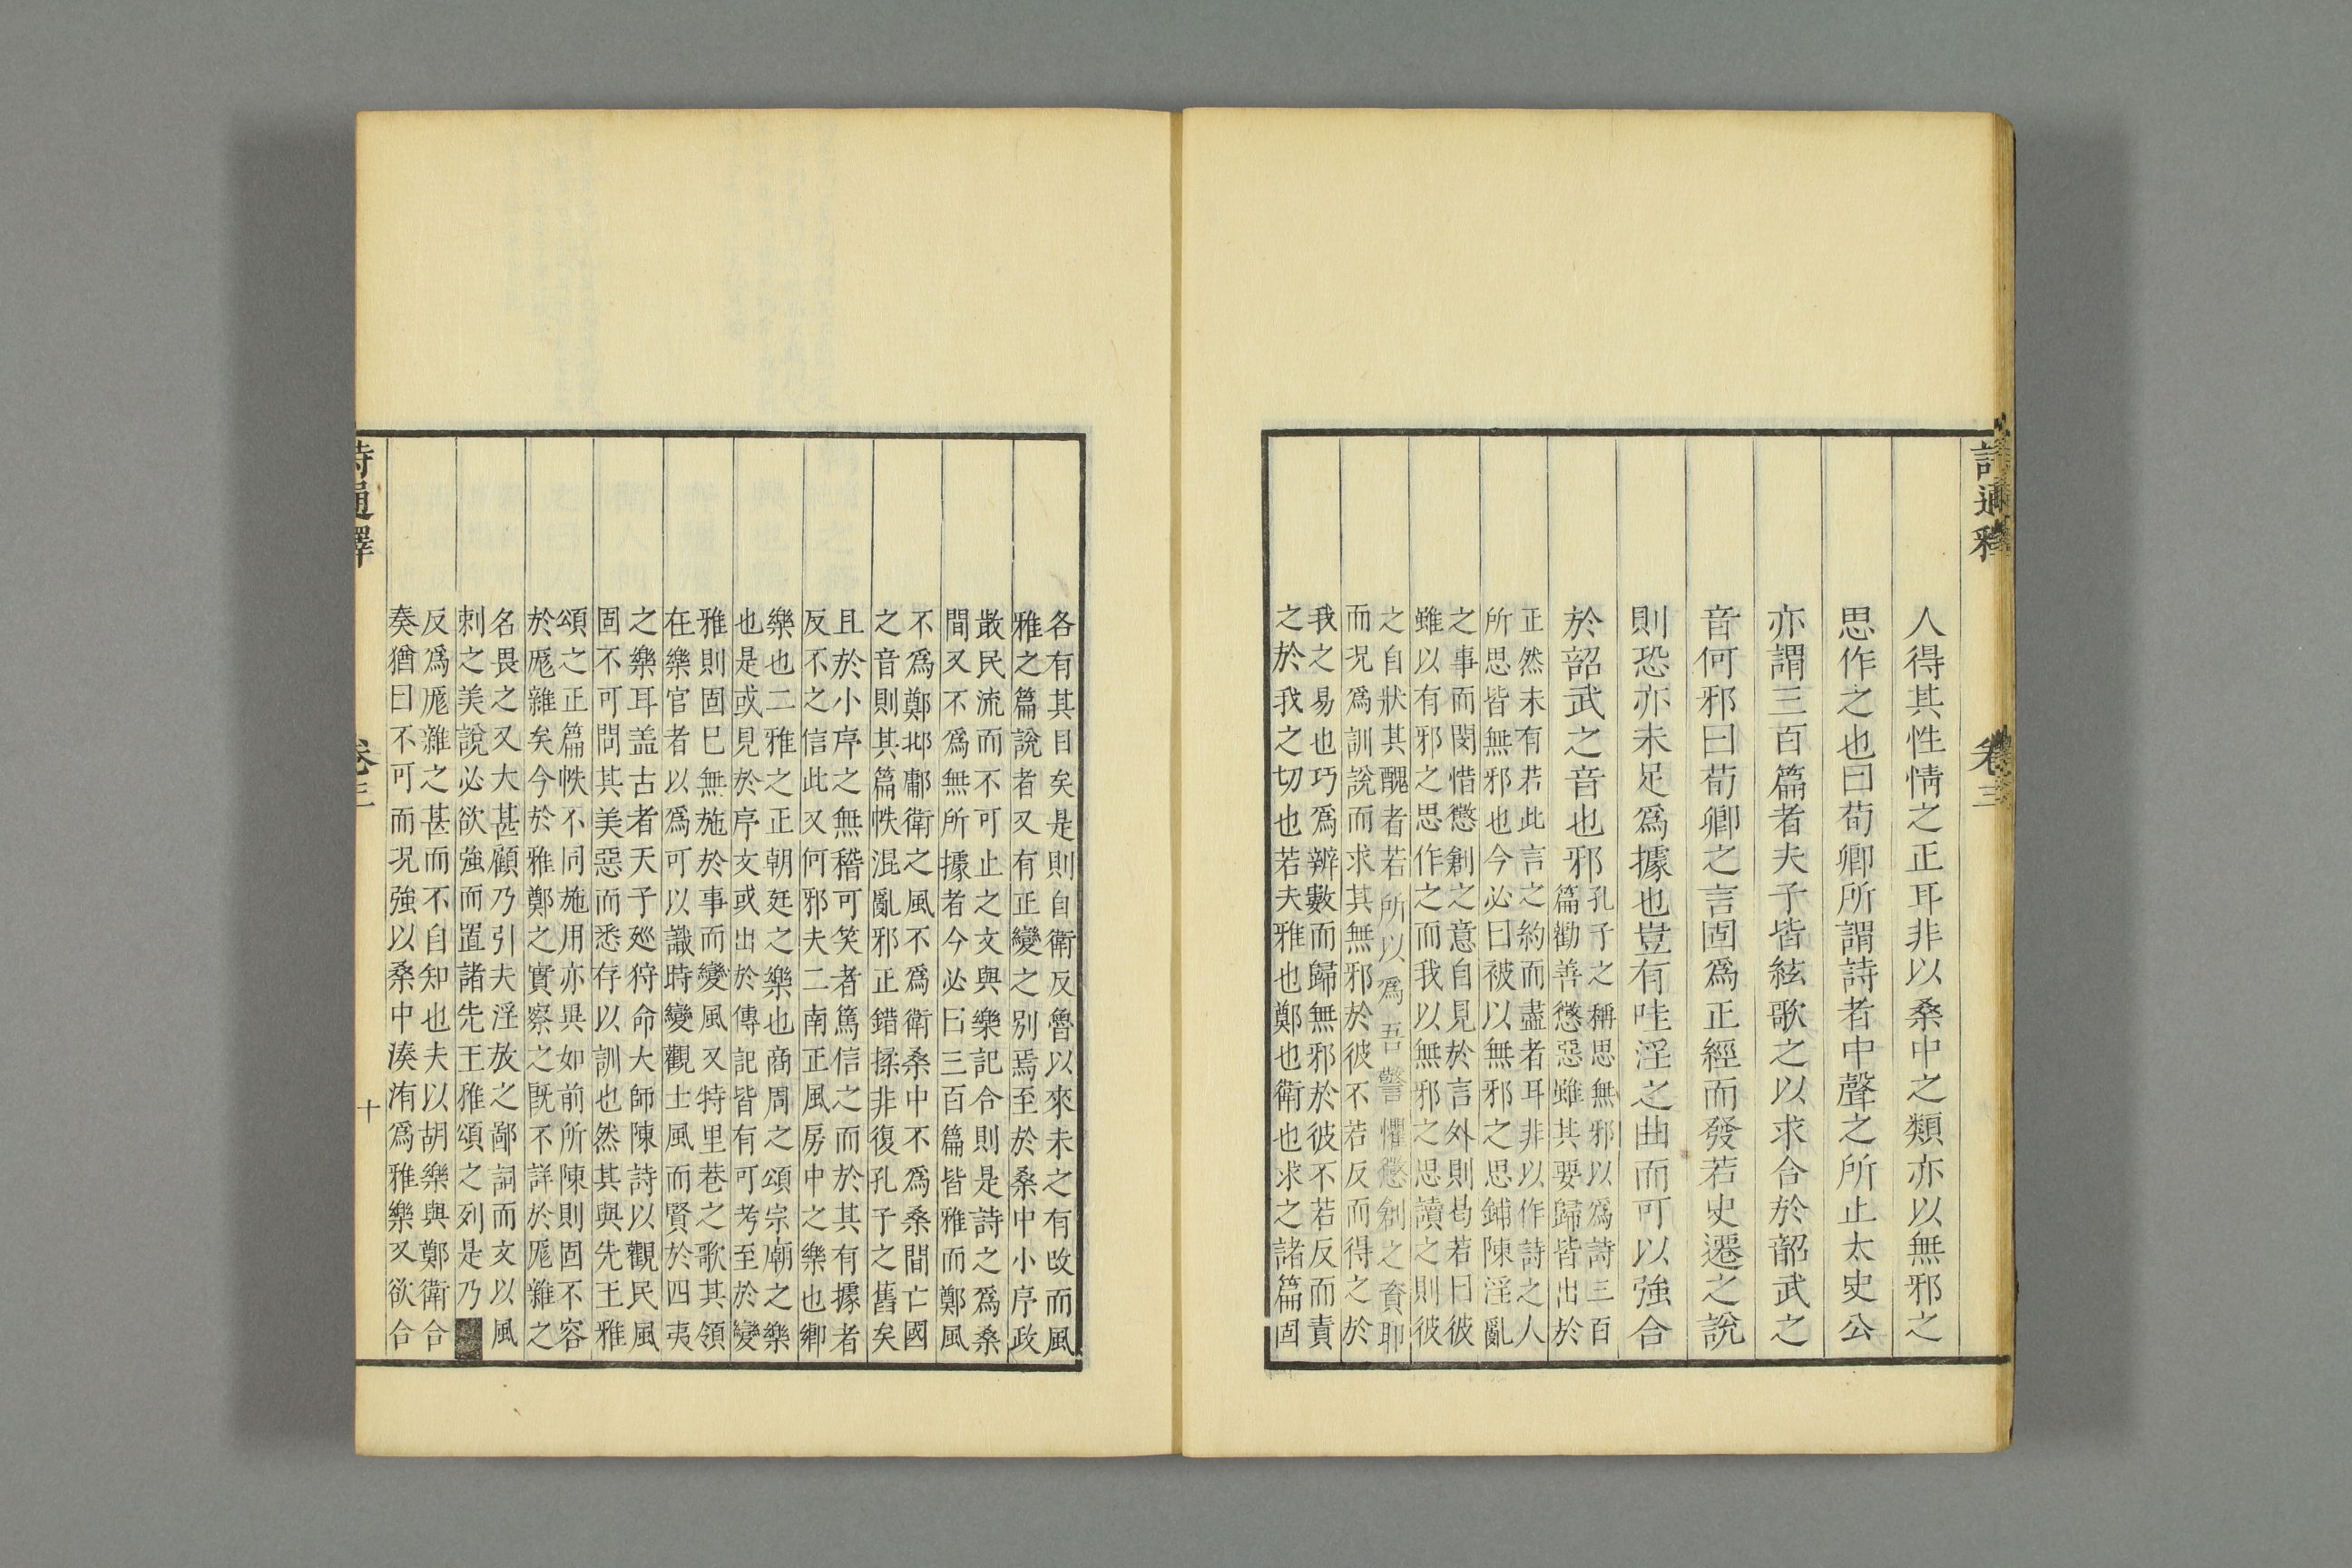 詩通釋
卷三
人得其性情之正耳非以桑中之類亦以無邪之
思作之也曰荀卿所謂詩者中聲之所止太史公
亦謂三百篇者夫子皆絃歌之以求合於韶武之
音何邪曰荀卿之言固爲正經而發若史遷之說
則恐亦未足爲據也豈有哇淫之曲而可以強合
於韶武之音也邪
孔子之稱思無邪以爲詩三百
篇勸善懲惡雖其要歸皆出於
正然未有若此言之約而盡者耳非以作詩之人
所思皆無邪也今必曰被以無邪之思鋪陳淫亂
之事而閔惜懲創之意自見於言外則曷若曰彼
雖以有邪之思作之而我以無邪之思讀之則彼
之自狀其醜者若所以爲吾警懼懲創之資耶
而况爲訓說而求其無邪於彼不若反而得之於
我之易也巧爲辨數而歸無邪於彼不若反而責
之於我之切也若夫雅也鄭也衛也求之諸篇固
各有其目矣是則自衛反魯以來未之有改而風
雅之篇說者又有正變之別焉至於桑中小序政
散民流而不可止之文與樂記合則是詩之爲桑
間又不爲無所據者今必曰三百篇皆雅而鄭風
不爲鄭邶鄘衛之風不爲衛桑中不爲桑間亡國
之音則其篇帙混亂邪正錯揉非復孔子之舊矣
且於小序之無稽可笑者篤信之而於其有據者
反不之信此又何邪夫二南正風房中之樂也鄉
樂也二雅之正朝廷之樂也商周之頌宗廟之樂
也是或見於序文或出於傳記皆有可考至於變
雅則固巳無施於事而變風又特里巷之歌其領
在樂官者以爲可以識時變觀土風而賢於四夷
之樂耳盖古者天子廵狩命大師陳詩以觀民風
固不可問其美惡而悉存以訓也然其與先王雅
頌之正篇帙不同施用亦異如前所陳則固不容
於厖雜矣今於雅鄭之實察之旣不詳於厖雜之
名畏之又大甚顧乃引夫淫放之鄙詞而文以風
刺之美說必欲強而置諸先王雅頌之列是乃
反爲厖雜之甚而不自知也夫以胡樂與鄭衛合
奏猶曰不可而况強以桑中湊洧爲雅樂又欲合
詩通釋
卷三
十